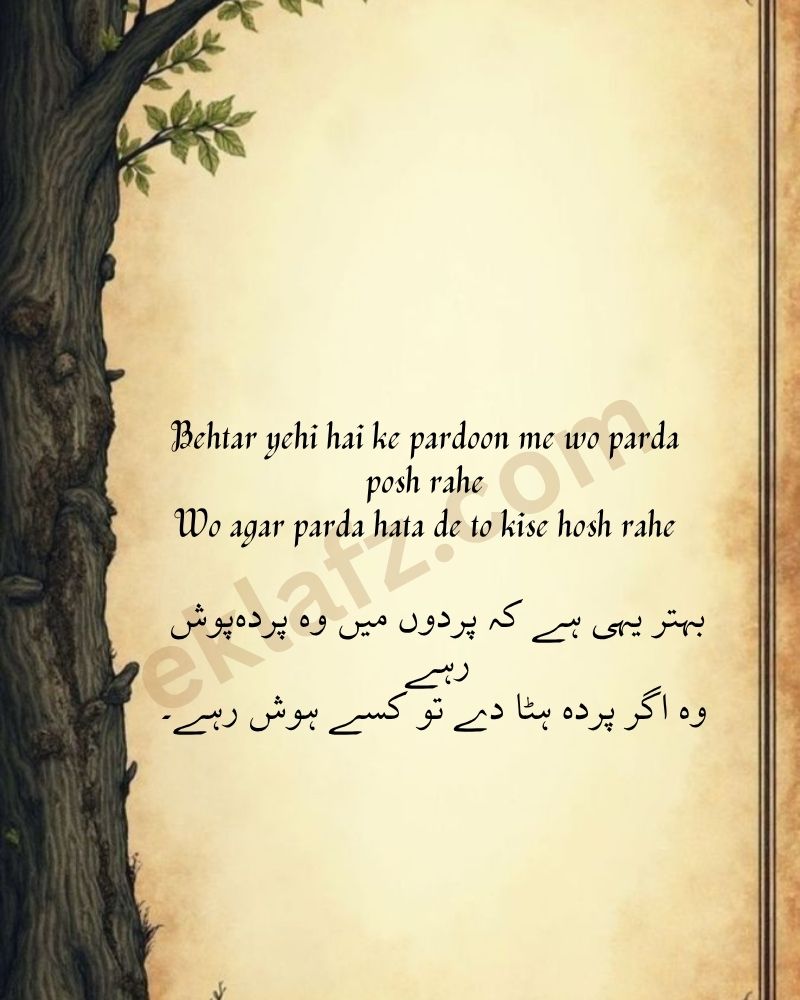 Behtar yehi hai ke pardoon me wo parda
posh rahe
Wo agar parda hata de to kise hosh rahe
بہتر یہی ہے کہ پردوں میں وہ پردہ‌پوش
رہے
وہ اگر پردہ ہٹا دے تو کسے ہوش رہے۔
eklafz.com